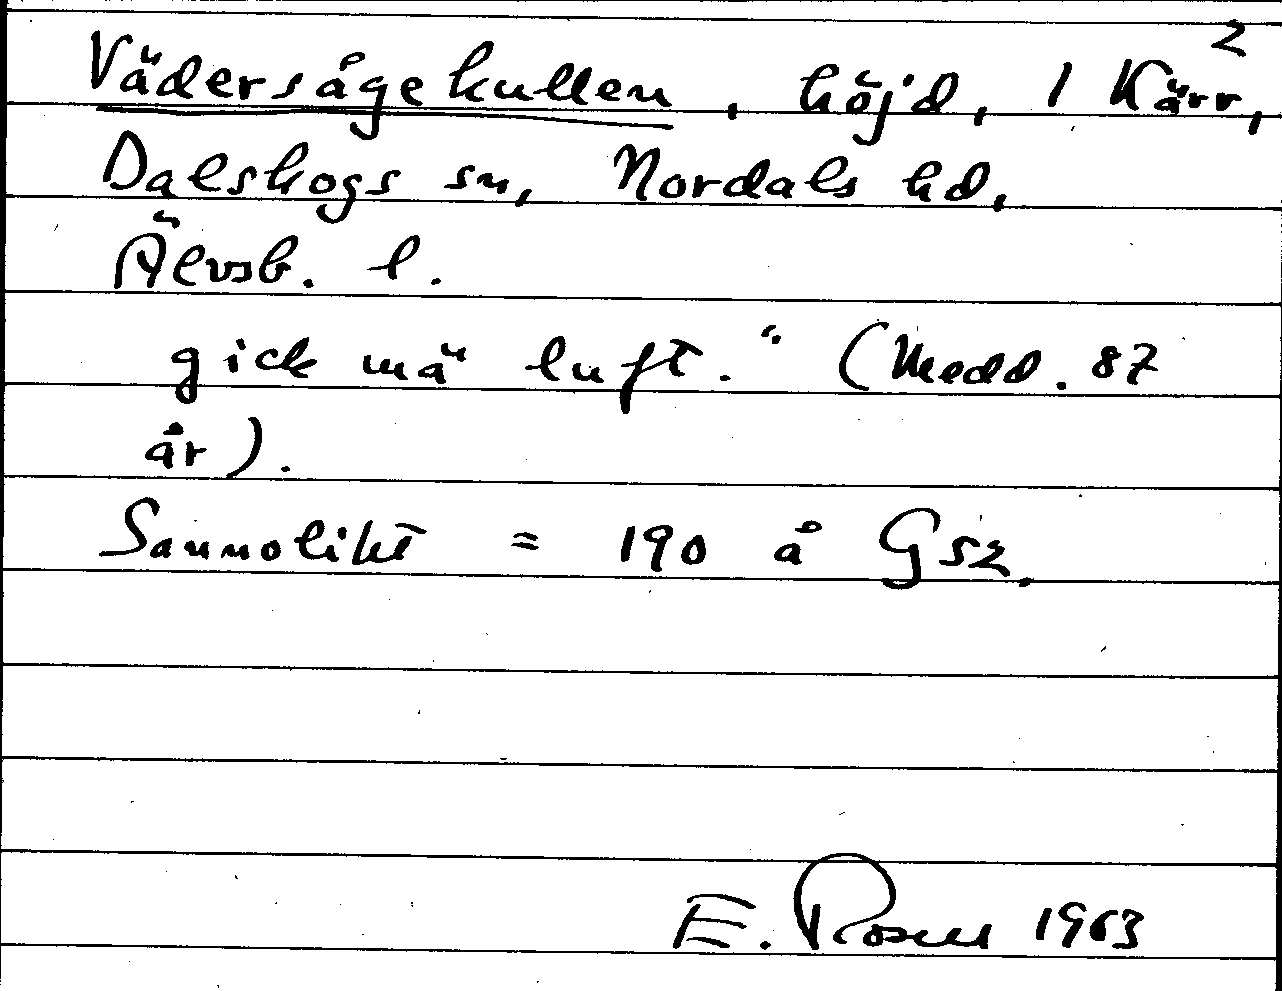 2
Vädersågekullen, höjd, 1 Kärr,
Dalskogs sn, Nordals hd,
Älvsb. l.
gick mä luft." (Medd. 87
år).
Sannolikt = 190 å G52.
E. Rosell 1963